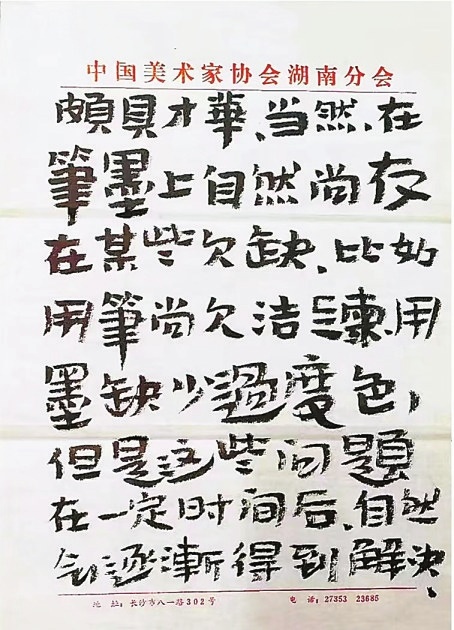 中国美术家协会湖南分会
頗具才華、当然、在
筆墨上自然尚存
在某些欠缺、比如
用筆尚欠洁練、用
墨缺少過度色，
但是这些问題
在一定时间后、自然
会逐漸得到解决、
地 址：长沙市八一路302号 电 话：27353 23685